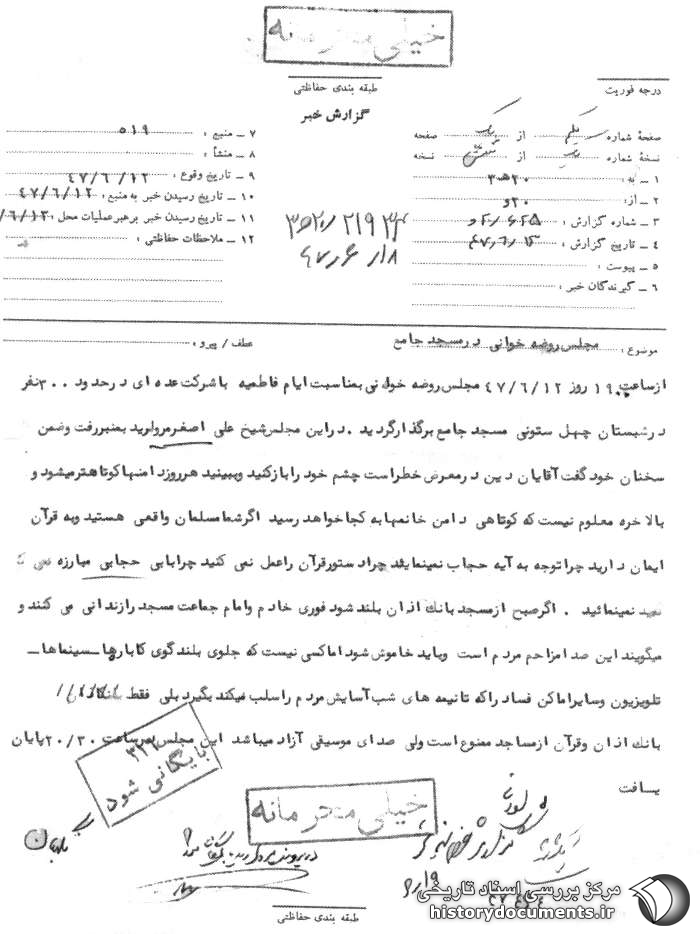 خیلی محرمانه
درجه فوریت
طبقه بندی حفاظتی
گزارش خبر
صفحهٔ شماره یکم از یک صفحه
نسخهٔ شماره از نسخه
۱ ــ به : ۳۲۰
۲ ــ از: ۲۰و
۳ ــ شماره گزارش :
۴ ــ تاریخ گزارش :
۵ ــ پیوست :
۶ ــ گیرندگان خبر :
۷ ــ منبع : ۵۱۹
۸ ــ منشأ :
۹ ــ تاریخ وقوع : ۴۷/۶/۱۲
۱۰ ــ تاریخ رسیدن خبر به منبع : ۴۷/۶/۱۲
۱۱ ــ تاریخ رسیدن خبر برهبر عملیات محل :
۱۲ ــ ملاحظات حفاظتی :
موضوع : مجلس روضه خوانی در مسجد جامع
عطف / پیرو :
از ساعت ۱۹۰۰ روز ۴۷/۶/۱۲ مجلس روضه خوانی بمناسبت ایام فاطمیه با شرکت عده ای در حدود ۳۰۰ نفر
در شبستان چهل ستونی مسجد جامع برگذار گردید . در این مجلس شیخ علی اصغر مرولرید بمنبر رفت وضمن
سخنان خود گفت آقایان دین در معرض خطر است چشم خود را باز کنید وببینید هر روز دامنها کوتاهتر میشود و
بالاخره معلوم نیست که کوتاهی دامن خانمها به کجا خواهد رسید اگر شما مسلمان واقعی هستید وبه قرآن
ایمان دارید چرا توجه به آیه حجاب نمینمائید چرا دستور قرآن را عمل نمی کنید چرا با بی حجابی مبارزه نمی ک
نمینمائید . اگر صبح از مسجد بانک اذان بلند شود فوری خادم وامام جماعت مسجد را زندانی می کنند و
میگویند این صدا مزاحم مردم است وباید خاموش شود اما کسی نیست که جلوی بلندگوی کابارها ــ سینماها ــ
تلویزیون وسایر اماکن فساد را که تا نیمه های شب آسایش مردم را سلب میکند بگیرد بلی فقط
بانک اذان وقرآن از مساجد ممنوع است ولی صدای موسیقی آزاد میباشد این مجلس در ساعت ۲۰/۳۰ پایان
یافت
بایگانی شود
خیلی محرمانه
طبقه بندی حفاظتی
مرکز بررسی اسناد تاریخی
historydocuments.ir